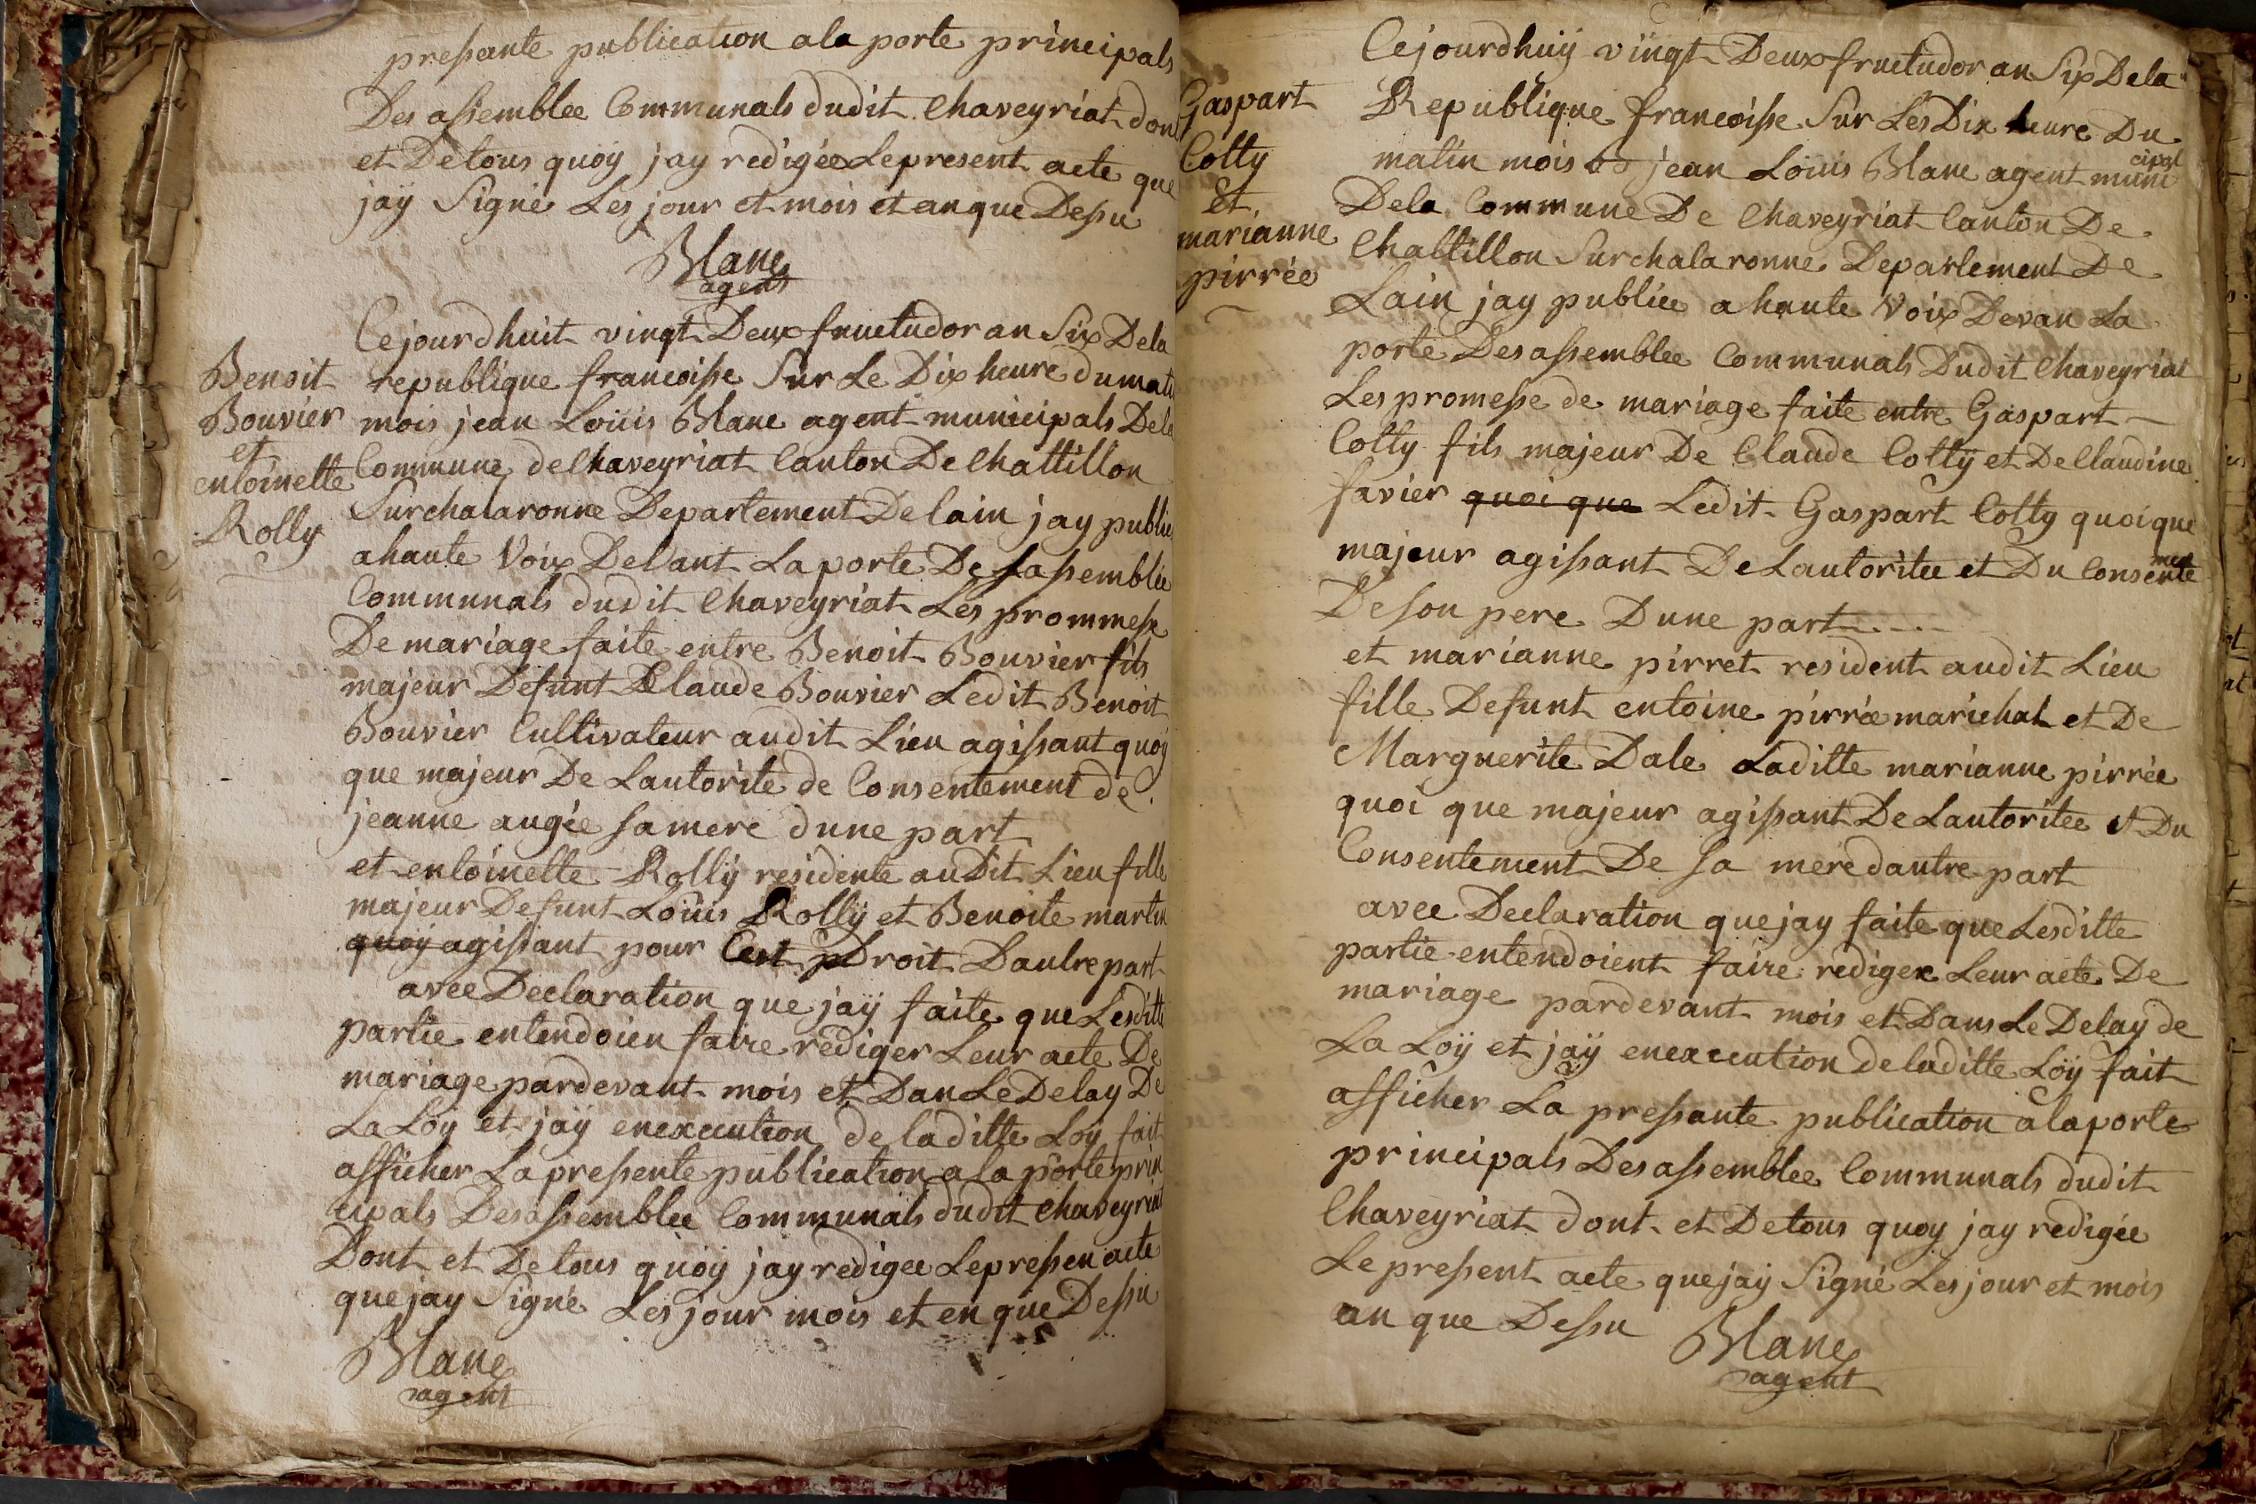 pressante publication ala porte principals
Des assemblee Communals dudit Chaveyriat dont
et Detous quoÿ jay redigée Lepresent acte que
jaÿ Signé Les jour et mois et an que Dessu
Blanc
agent
Benoit
Bouvier
et
entoinette
Rolly
Cejourdhuit vingt Deux fructudor an Six Dela
republique francoisse Sur Le Dix heure dumati
mois jean Loüis Blanc agent municipals Dela
Commune de Chaveyriat Canton De Chattillon
Surchalaronne Departement Delain jay publie
ahaute Voix Devant Laporte De Lassemblée
Communals dudit Chaveyriat Les prommesse
De mariage faite entre Benoit Bouvier fils
majeur Defunt Claude Bouvier Ledit Benoit
Bouvier Cultivateur audit Lieu agissant quoy
que majeur De Lautorite de Consentement de
jeanne augée samere dune part
et entoinette Rollÿ residente audit Lieu fille
majeur Defunt Loüis Rollÿ et Benoite martin
quoÿ agissant pour Cest Droit Dautre part
avec Declaration que jaÿ faite que Lesditte
partie entendoien faire rediger Leur acte De
mariage pardevant mois et Dan Le Delay De
La Loÿ et jaÿ enexecution de laditte Loÿ fait
afficher La pressente publication ala porte prin
cipals Desassemblee Communals dudit Chaveyriat
Dont et Detous quoÿ jay redigee Lepressen acte
que jay Signé Les jour mois et en que Dessu
Blanc
agent
Gaspart
Cotty
et
marianne
pirrée
Cejourdhuiÿ vingt Deux fructudor an Six Dela
Republique francoisse Sur Les Dix heure Du
matin mois jean Loüis Blanc agent municipal
Dela Commune De Chaveyriat Canton De
Chattillon Surchalaronne Departement De
Lain jay publiee a haute Voix Devan La
porte Desassemblee Communals Dudit Chaveyriat
Les promesse de mariage faite entre Gaspart
Cotty fils majeur De Claude Cottÿ et De Claudine
favier quoi que Ledit Gaspart Cotty quoique
majeur agissant De Lautoritee et Du Consentement
De son pere Dune part
et marianne pirret resident audit Lieu
fille Defunt entoine pirrée marichal et De
Marguerite Dale Laditte marianne pirrée
quoi que majeur agissant De Lautoritee et Du
Consentement De sa mere dautre part
avec Declaration que jay faite que Lesditte
partie entendoient faire rediger Leur acte De
mariage pardevant mois et Dans Le Delay de
La Loÿ et jaÿ enexecution de laditte Loÿ fait
afficher La pressante publication ala porte
principals Des assemblee Communals dudit
Chaveyriat dont et Detous quoy jay redigée
Le pressent acte que jaÿ Signé Les jour et mois
an que Dessu
Blanc
agent